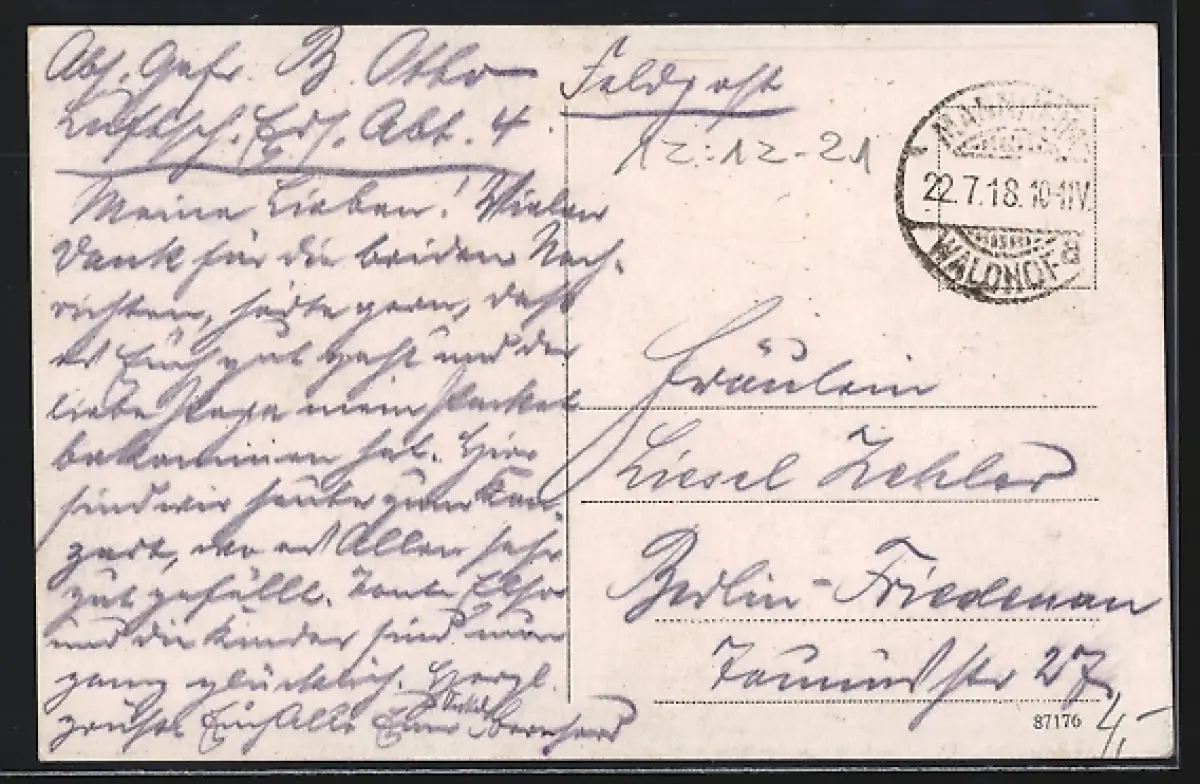 Abs. Gefr. B. Otto
Luftsch. Ers. Abt. 4.
Meine Lieben! Vielen
Dank für die beiden Nach-
richten, hörte gern, daß
es Euch gut geht und der
liebe Papa mein Packet
bekommen hat. Hier
sind wir heute zum Kon-
zert, wo es Allen sehr
gut gefällt. Tante Else
und die Kinder sind nun
ganz glücklich. Herzl.
grüßt Euch Alle Euer Bernhard
Feldpost
12.12-21
MANNHEIM
22.7.18.10-11V.
WALDHOF a
Fräulein
Liesel Zehler
Berlin-Friedenau
Taunusstr 27
87176
4,-